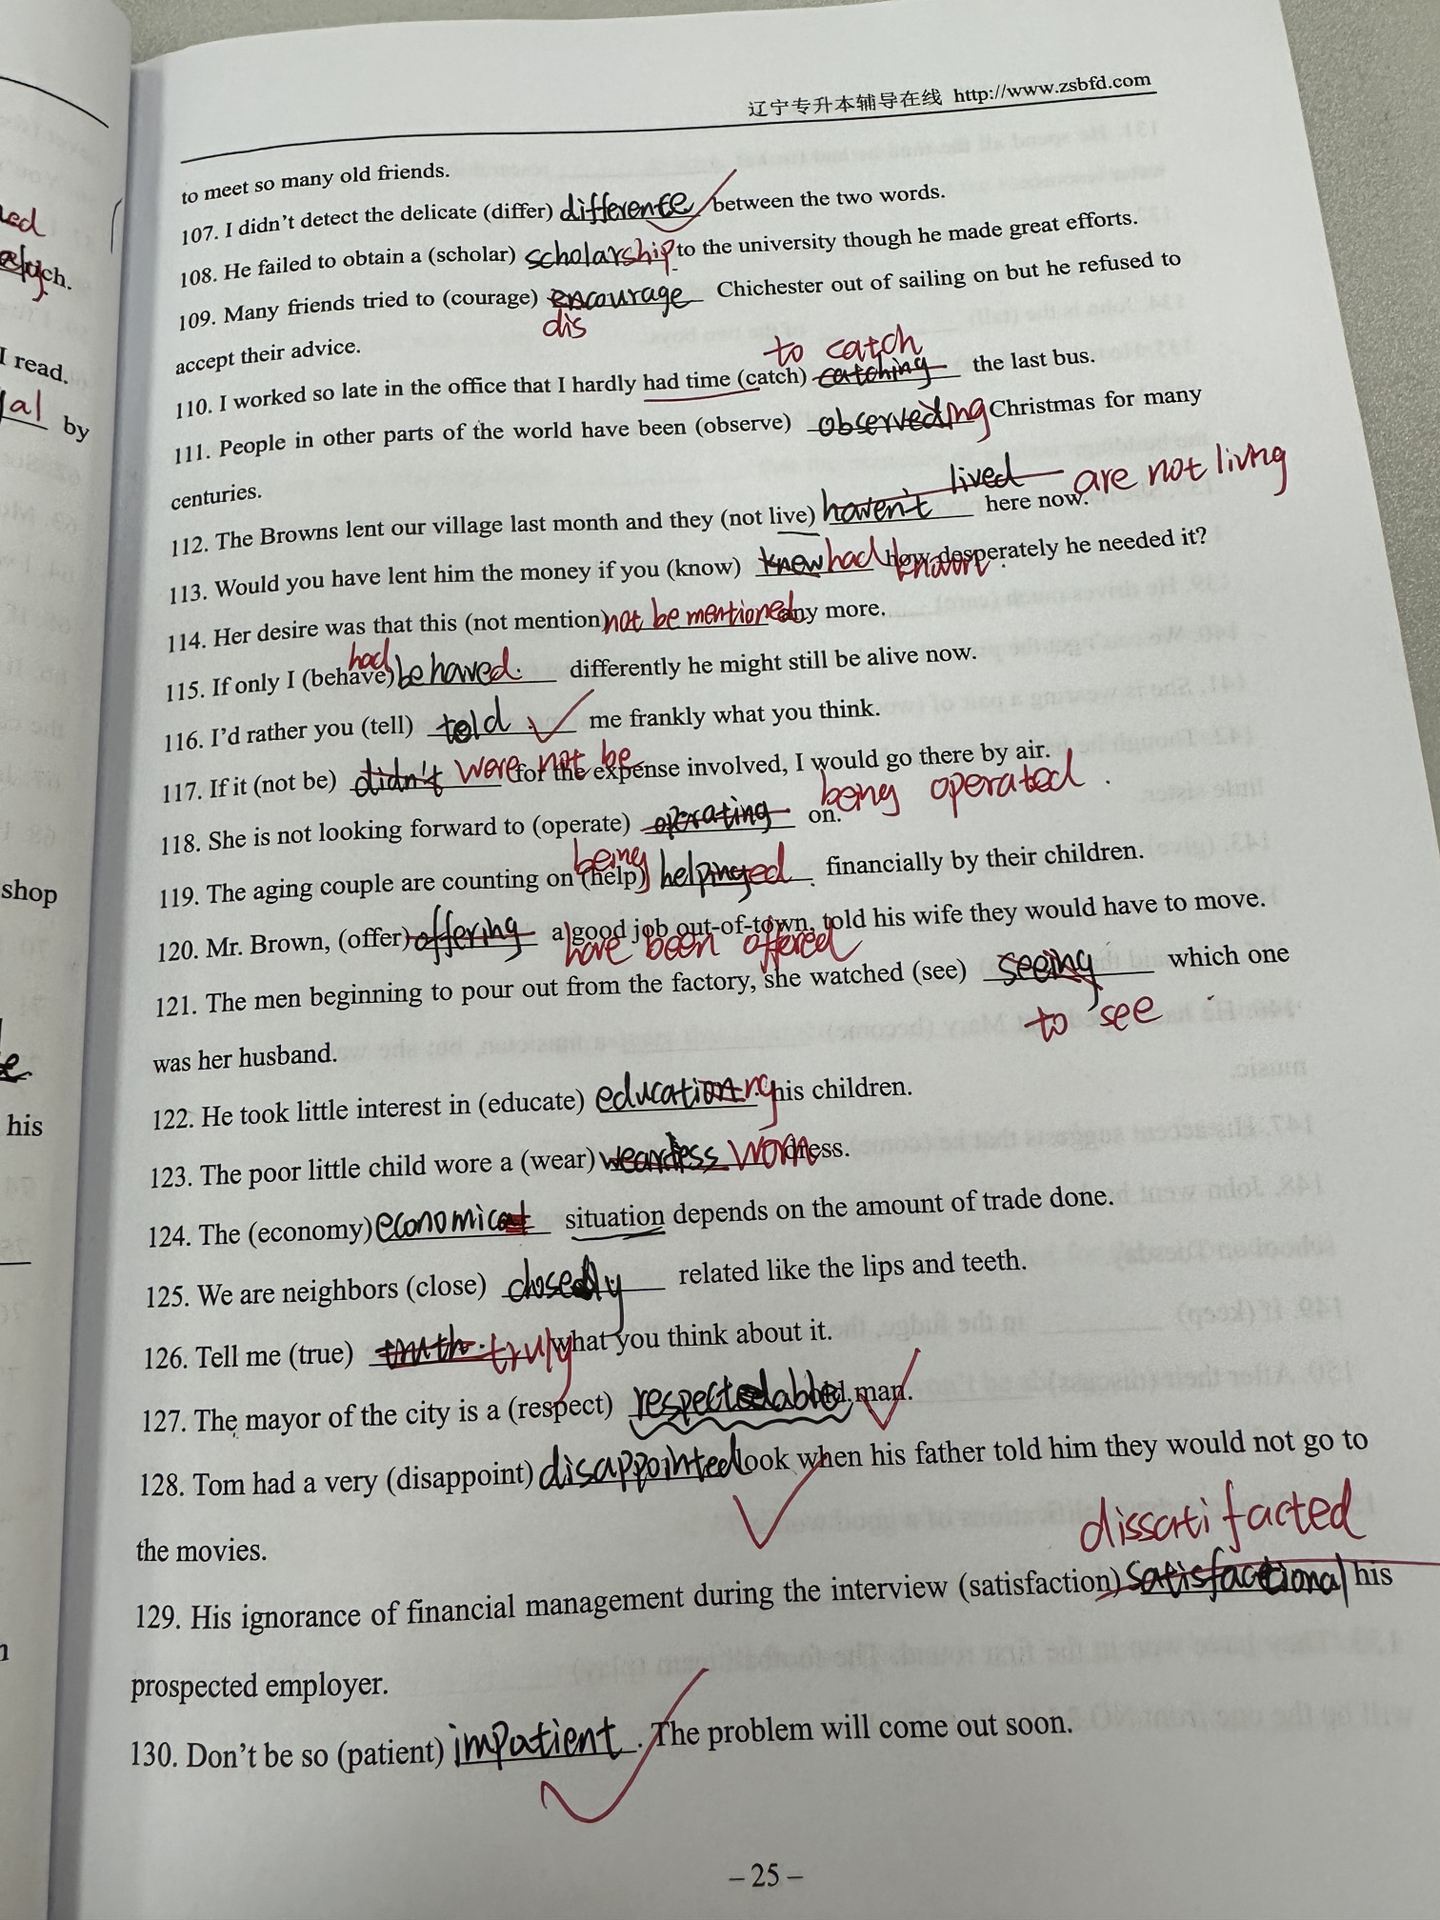 辽宁专升本辅导在线 http://www.zsbfd.com
to meet so many old friends.
107. I didn't detect the delicate (differ) difference between the two words.
108. He failed to obtain a (scholar) scholarship to the university though he made great efforts.
109. Many friends tried to (courage) encourage Chichester out of sailing on but he refused to
dis
accept their advice.
to catch
110. I worked so late in the office that I hardly had time (catch) catching the last bus.
111. People in other parts of the world have been (observe) observeding Christmas for many
centuries.
lived are not living
112. The Browns lent our village last month and they (not live) haven't here now.
113. Would you have lent him the money if you (know) knew had known how desperately he needed it?
114. Her desire was that this (not mention) not be mentioned any more.
had
115. If only I (behave) behaved. differently he might still be alive now.
116. I'd rather you (tell) told me frankly what you think.
117. If it (not be) didn't were not be for the expense involved, I would go there by air.
118. She is not looking forward to (operate) operating on. being operated
being
119. The aging couple are counting on (help) helpinged financially by their children.
120. Mr. Brown, (offer) offering a good job out-of-town, told his wife they would have to move.
have been offered
121. The men beginning to pour out from the factory, she watched (see) seeing which one
to see
was her husband.
122. He took little interest in (educate) education ng his children.
123. The poor little child wore a (wear) weardess worn dress.
124. The (economy) economical situation depends on the amount of trade done.
125. We are neighbors (close) closedly related like the lips and teeth.
126. Tell me (true) truth. truly what you think about it.
127. The mayor of the city is a (respect) respectedable old man.
128. Tom had a very (disappoint) disappointed look when his father told him they would not go to
the movies.
dissatifacted
129. His ignorance of financial management during the interview (satisfaction) satisfactional his
prospected employer.
130. Don't be so (patient) impatient. The problem will come out soon.
– 25 –
ed
ch.
I read.
al by
shop
his